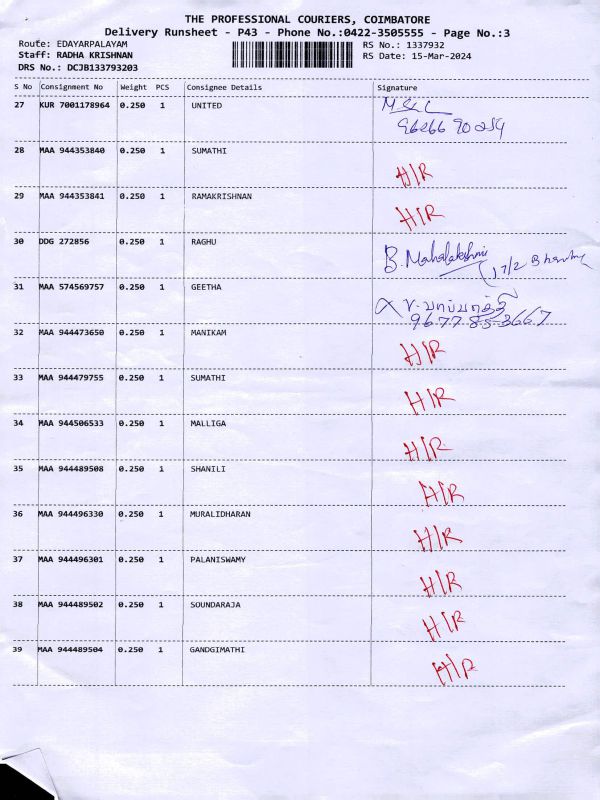 THE PROFESSIONAL COURIERS, COIMBATORE
Delivery Runsheet - P43 - Phone No.:0422-3505555 - Page No.:3
Route: EDAYARPALAYAM RS No.: 1337932
Staff: RADHA KRISHNAN RS Date: 15-Mar-2024
DRS No.: DCJB133793203
S No Consignment No Weight PCS Consignee Details Signature
27 KUR 7001178964 0.250 1 UNITED
28 MAA 944353840 0.250 1 SUMATHI H/R
29 MAA 944353841 0.250 1 RAMAKRISHNAN H/R
30 DDG 272856 0.250 1 RAGHU B. Mahalakshmi
17/2
31 MAA 574569757 0.250 1 GEETHA
96 77 85 3667
32 MAA 944473650 0.250 1 MANIKAM H/R
33 MAA 944479755 0.250 1 SUMATHI H/R
34 MAA 944506533 0.250 1 MALLIGA H/R
35 MAA 944489508 0.250 1 SHANILI H/R
36 MAA 944496330 0.250 1 MURALIDHARAN H/R
37 MAA 944496301 0.250 1 PALANISWAMY H/R
38 MAA 944489502 0.250 1 SOUNDARAJA H/R
39 MAA 944489504 0.250 1 GANDGIMATHI H/R